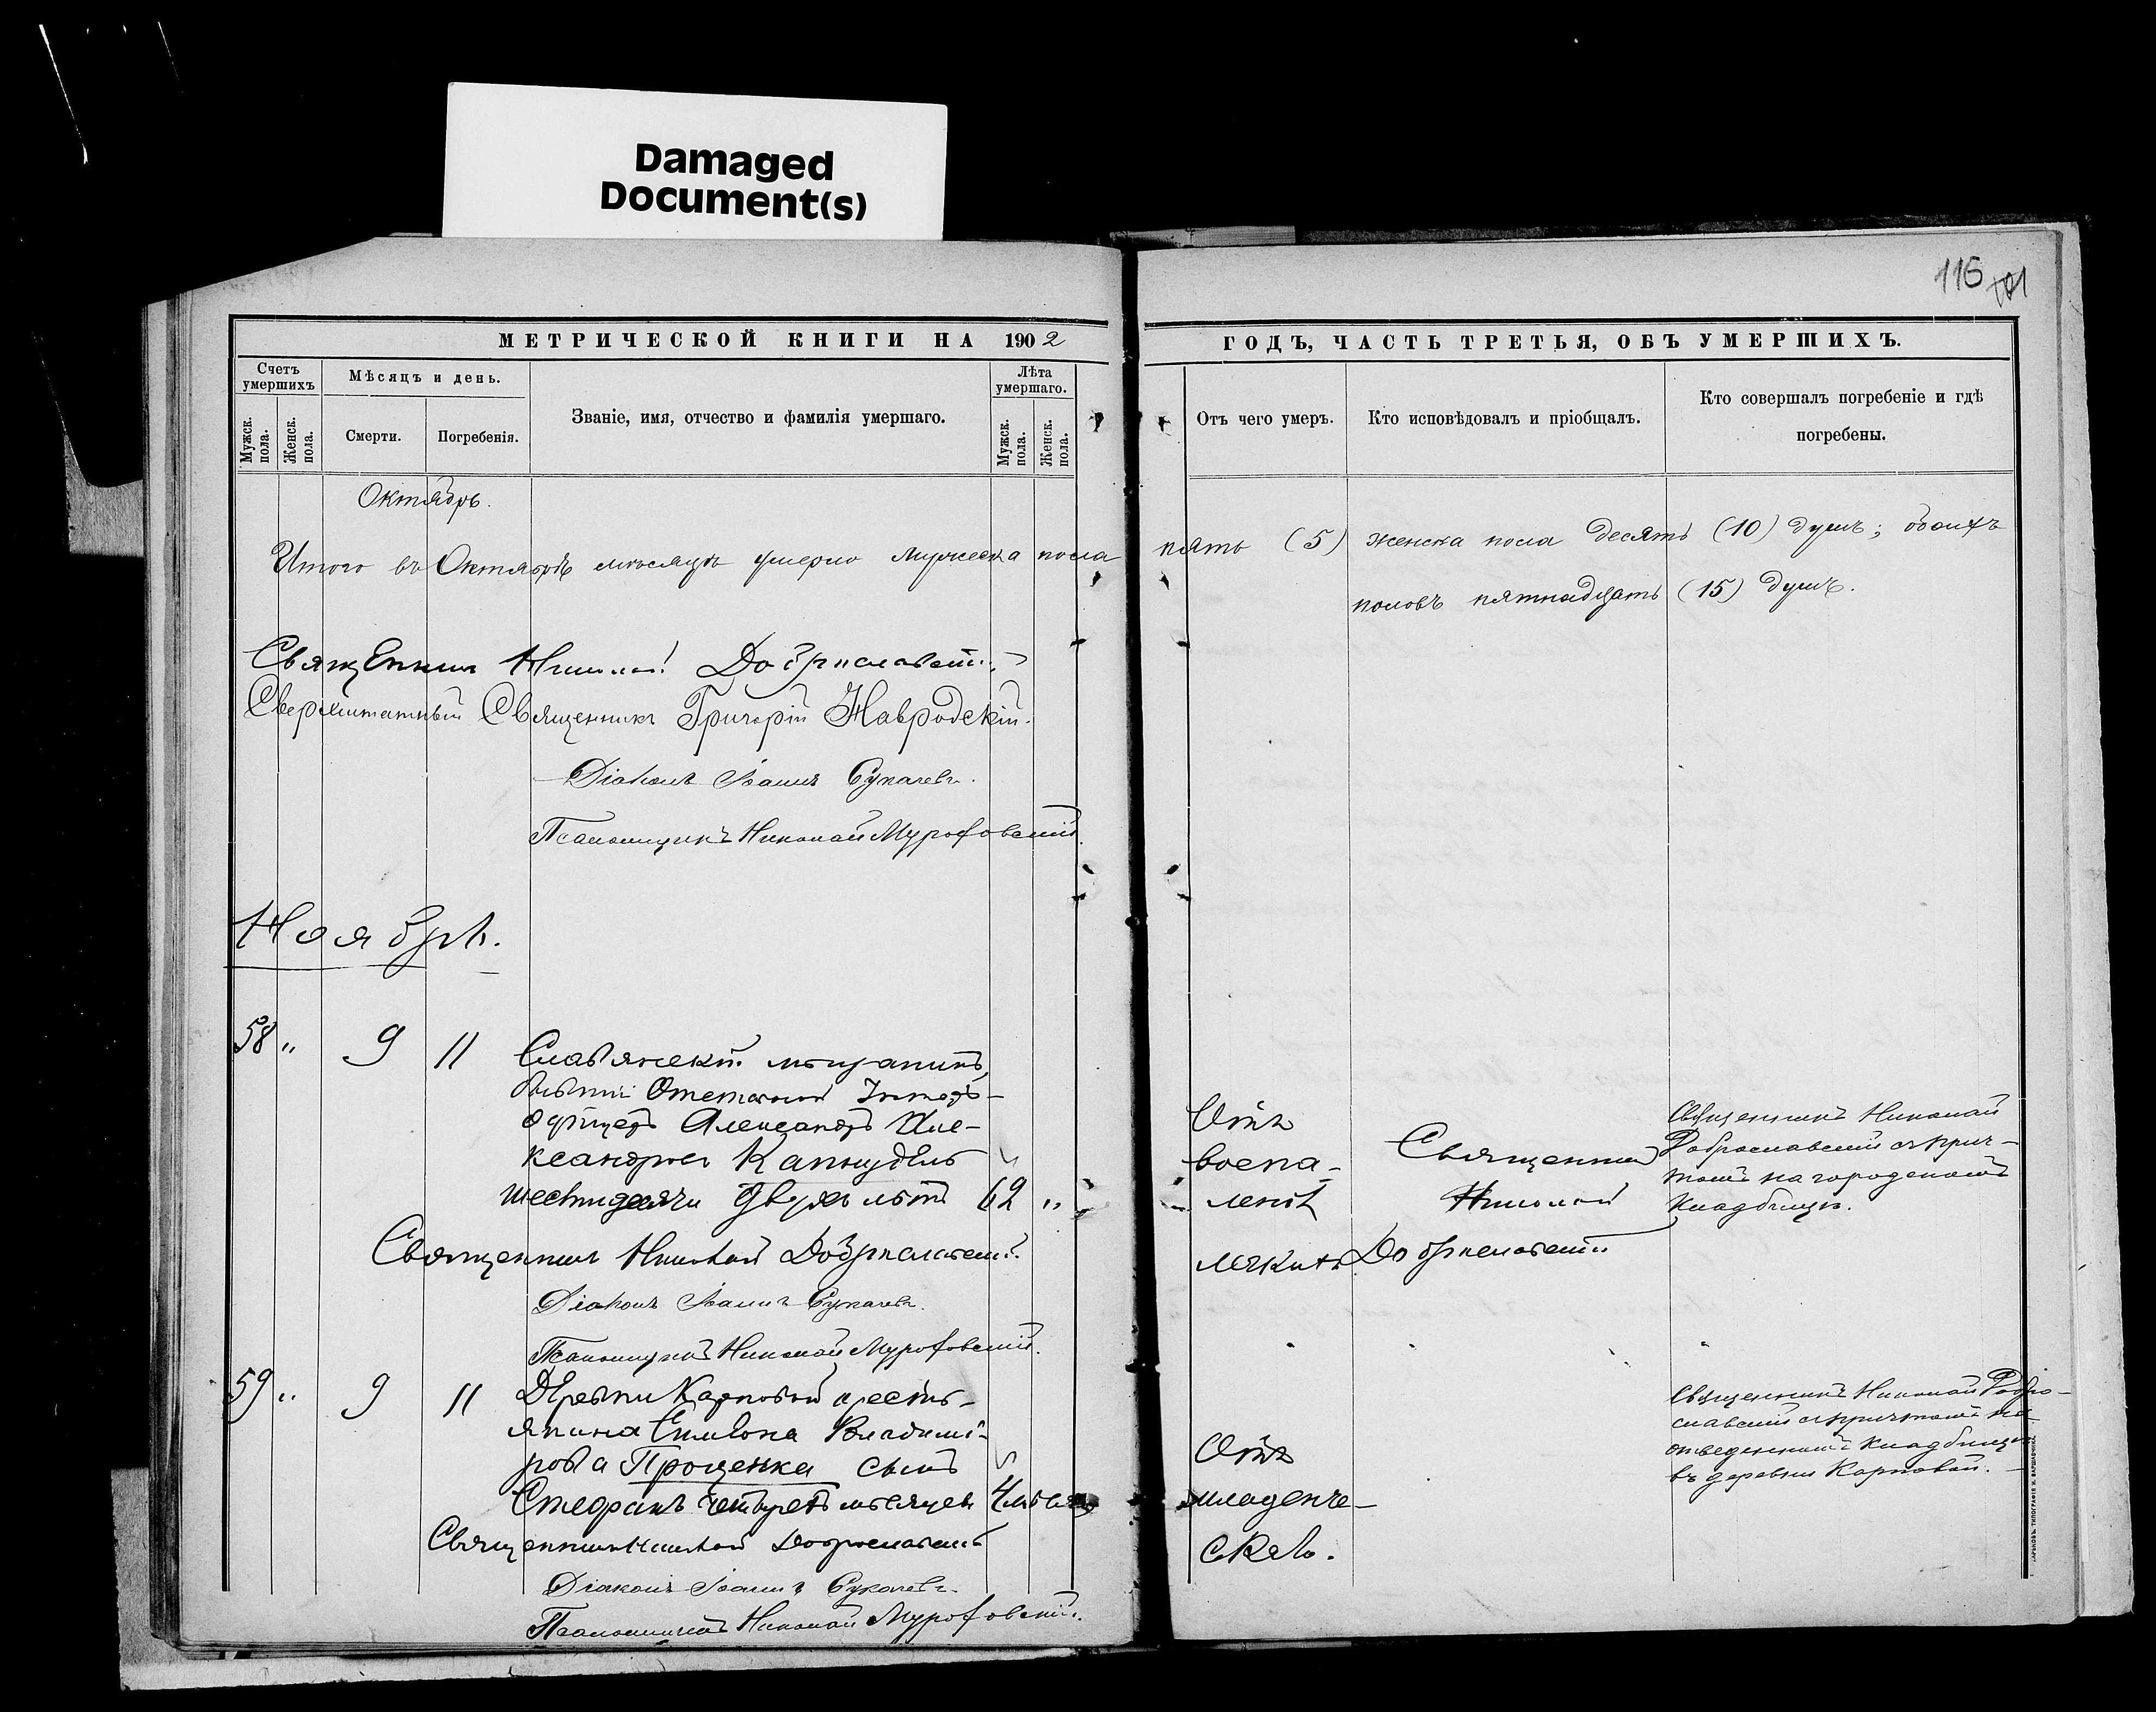 Damaged
Document(s)
116 101
МЕТРИЧЕСКОЙ КНИГИ НА 1902
Счетъ умершихъ
Мужск. пола.
Женск. пола.
Мѣсяцъ и день.
Смерти.
Погребенія.
Званіе, имя, отчество и фамилія умершаго.
Лѣта умершаго.
Мужск. пола.
Женск. пола.
Октябрь.
Итого въ Октябрѣ мѣсяцѣ умерло мужеска пола
Священникъ Николай Доброславскій
Сверхштатный Священникъ Григорій Навродскій.
Діаконъ Іоаннъ Сукачевъ.
Псаломщикъ Николай Мурофовскій.
Ноябрь.
58 " 9 11 Славянскій мѣщанинъ,
бывшій Отставной Унтеръ-
офицеръ Александръ Але-
ксандровъ
шестидесяти двухъ лѣтъ 62 "
Священникъ Николай Доброславскій.
Діаконъ Іоаннъ Сукачевъ.
Псаломщикъ Николай Мурофовскій.
59 " 9 11 Деревни Карповой кресть-
янина Симеона Владимі-
рова Проценка сынъ
Стефанъ четырехъ мѣсяцевъ 4 мѣсяц
Священникъ Николай Доброславскій
Діаконъ Іоаннъ Сукачевъ.
Псаломщикъ Николай Мурофовскій.
ГОДЪ, ЧАСТЬ ТРЕТЬЯ, ОБЪ УМЕРШИХЪ.
Отъ чего умеръ.
Кто исповѣдовалъ и пріобщалъ.
Кто совершалъ погребеніе и гдѣ
погребены.
пять (5) женска пола десять (10) душъ; обоихъ
половъ пятнадцать (15) душъ.
Отъ
воспа-
ленія
легкихъ
Священникъ
Николай
Доброславскій
Священникъ Николай
Доброславскій съ прич-
томъ на городскомъ
кладбищѣ.
Отъ
младенче-
скаго.
Священникъ Николай Добро-
славскій съ причтомъ на
отведенномъ кладбищѣ
въ деревнѣ Карповой.